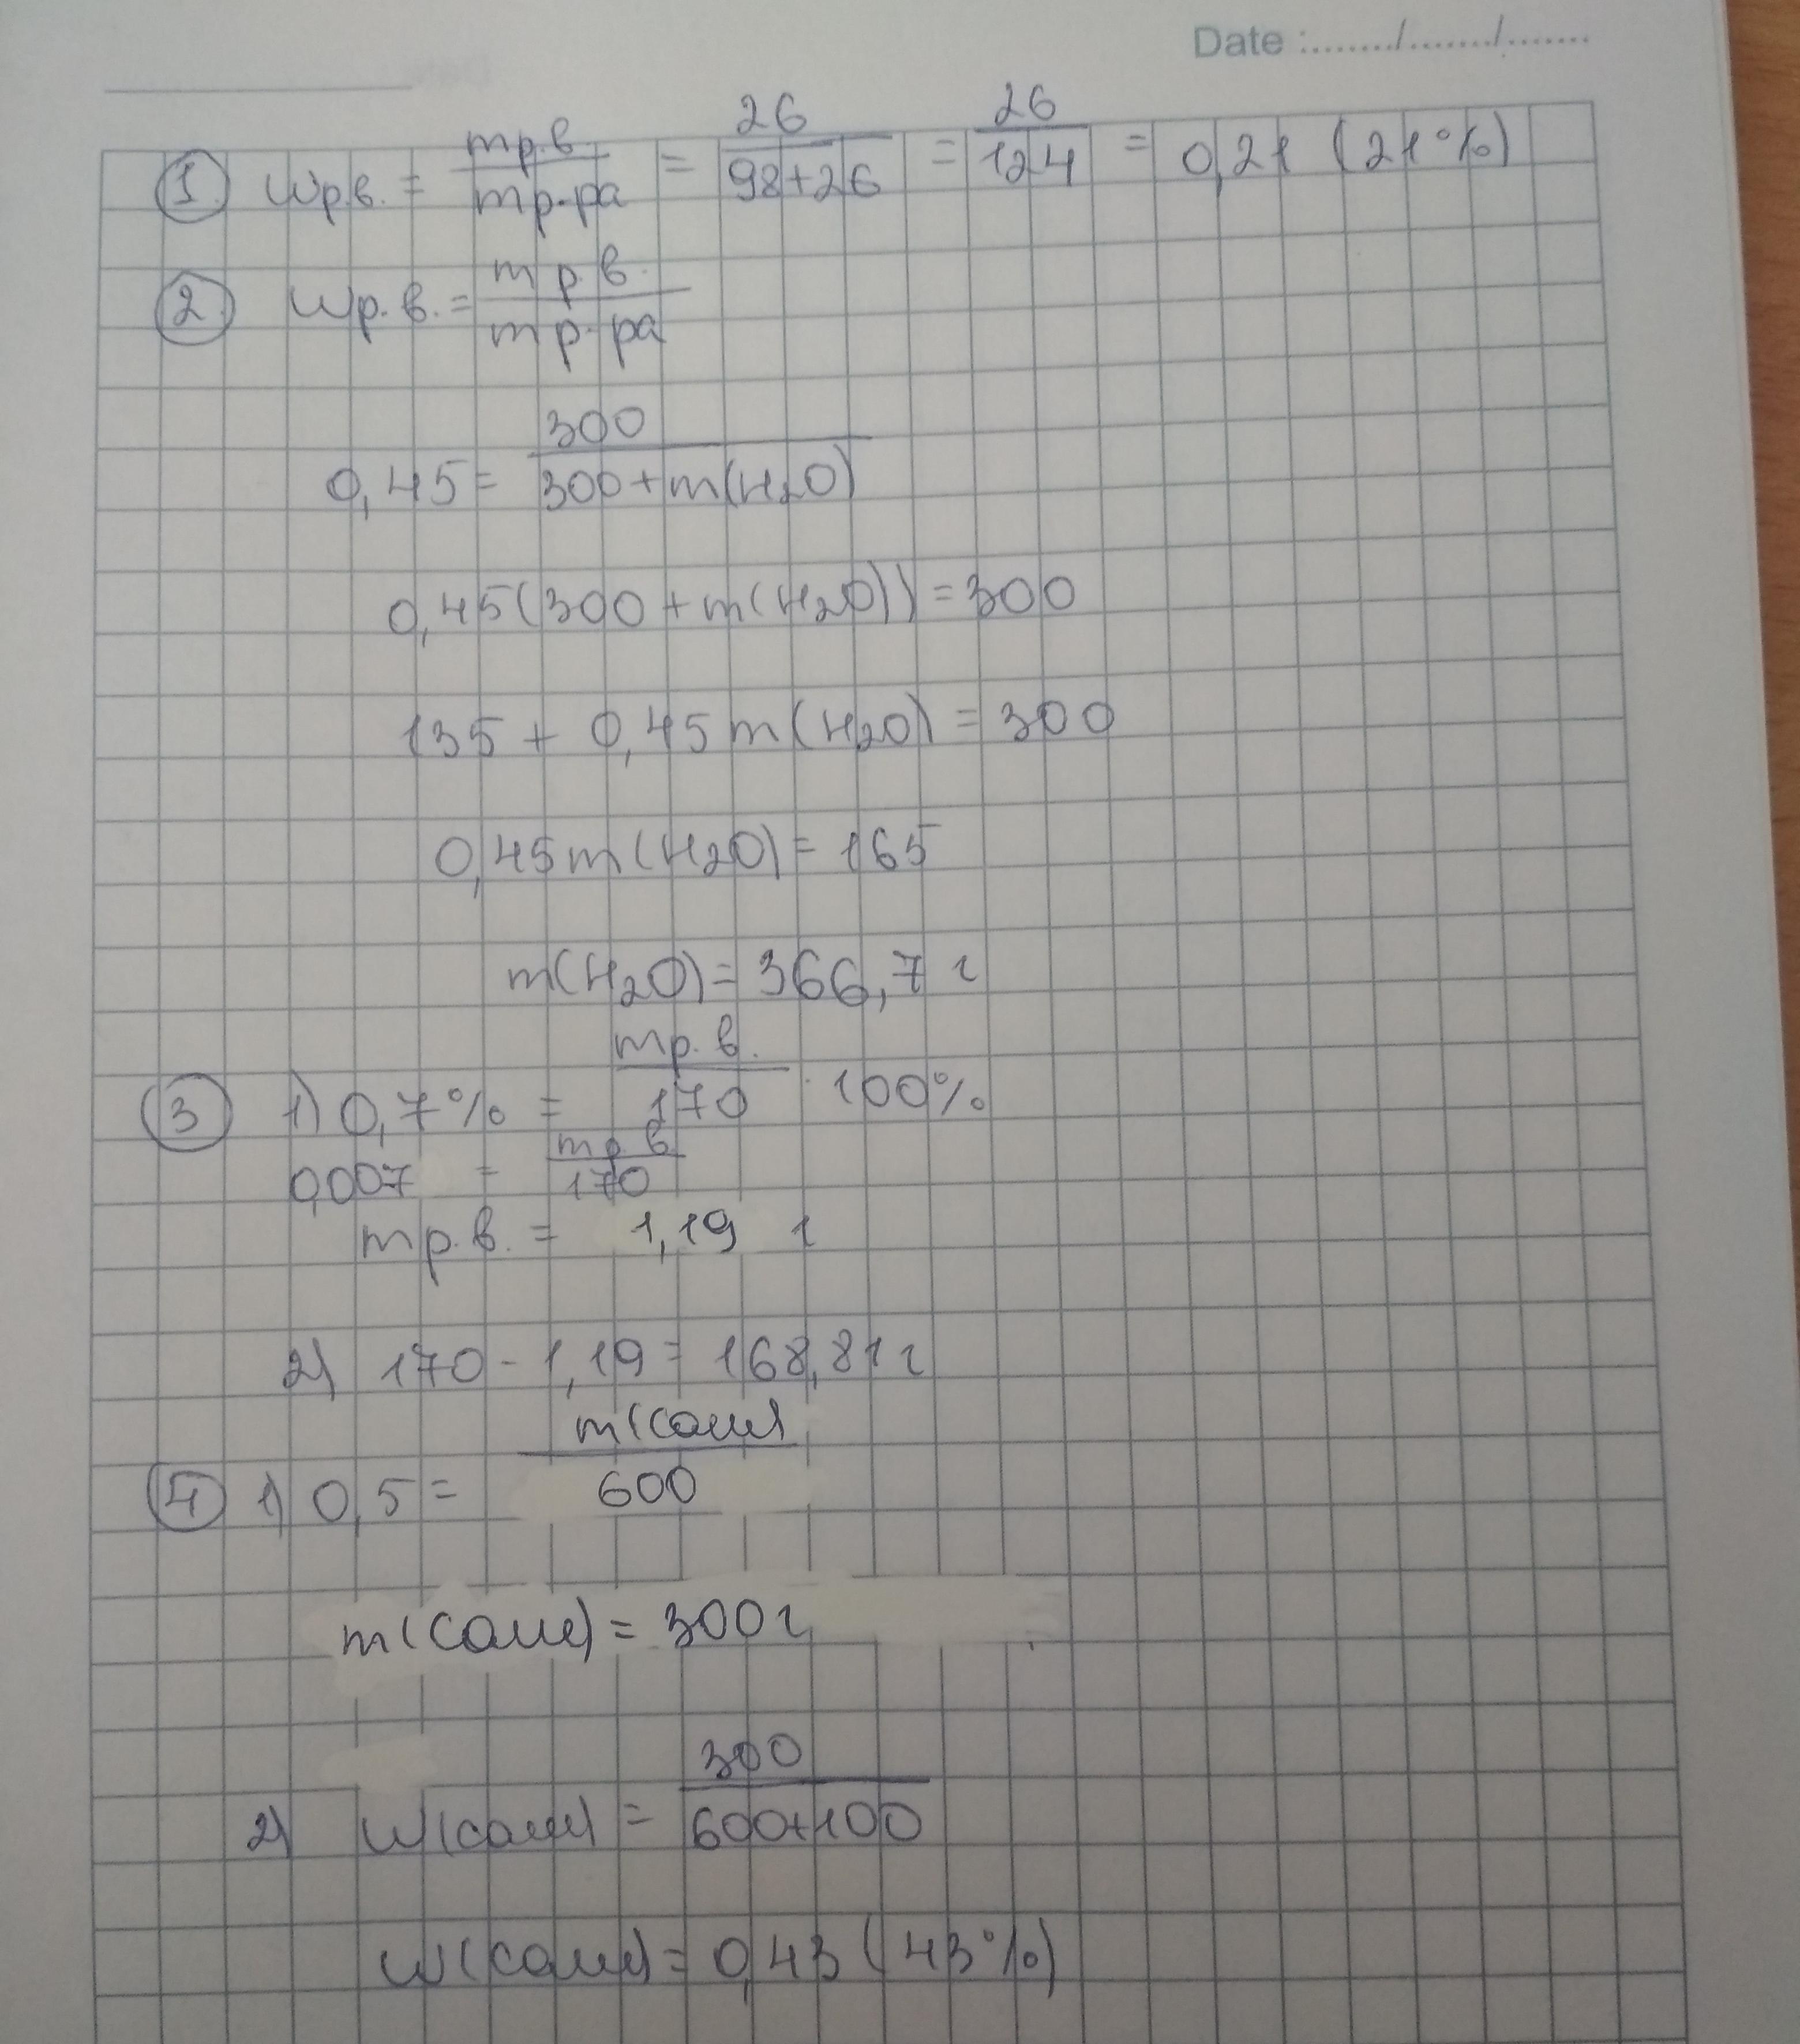 Date :......./......./.......
① wр.в. = mр.в. / mр-ра = 26 / 98+26 = 26 / 124 = 0,21 (21%)
② wр.в. = mр.в. / mр-ра
0,45 = 300 / 300+m(H2O)
0,45(300+m(H2O)) = 300
135 + 0,45m(H2O) = 300
0,45m(H2O) = 165
m(H2O) = 366,7 г
③ 1) 0,7% = mр.в. / 170 · 100%
0,007 = mр.в / 170
mр.в. = 1,19 г
2) 170 - 1,19 = 168,81 г
④ 1) 0,5 = m(соли) / 600
m(соли) = 300 г
2) w(соли) = 300 / 600+100
w(соли) = 0,43 (43%)